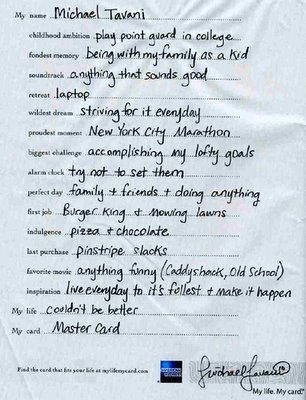 My name Michael Tavani
childhood ambition play point guard in college
fondest memory being with my family as a kid
soundtrack anything that sounds good
retreat laptop
wildest dream striving for it everyday
proudest moment New York City Marathon
biggest challenge accomplishing my lofty goals
alarm clock try not to set them
perfect day family + friends + doing anything
first job Burger King & Mowing lawns
indulgence pizza & chocolate
last purchase pinstripe slacks
favorite movie anything funny (Caddyshack, Old School)
inspiration live everyday to it's follest & make it happen
My life couldn't be better
My card Master Card
Find the card that fits your life at mylifemycard.com
AMERICAN EXPRESS
Michael Tavani
My life. My card.